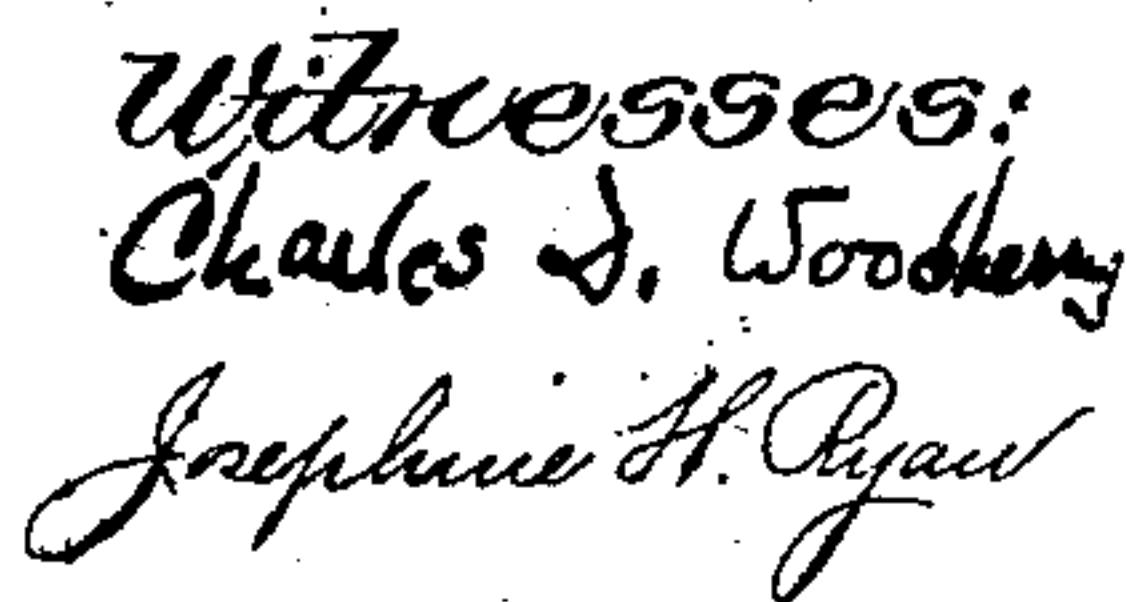 Witnesses:
Charles S. Woodberry
Josephine H. Ryan